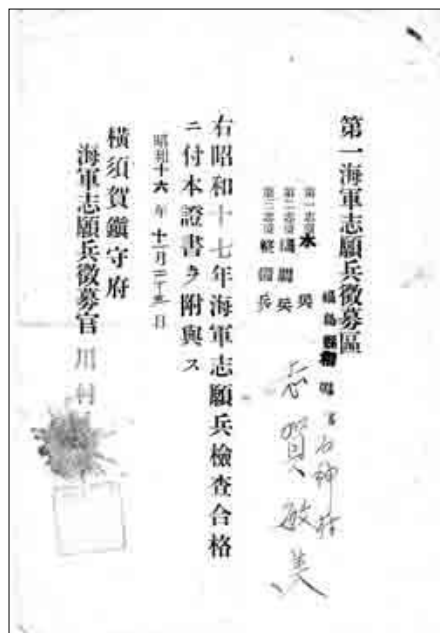 第一海軍志願兵徵募區
福島縣 石神村
志賀敏美
第一志望 水兵
第二志望 機關兵
第三志望 兵
右昭和十七年海軍志願兵檢査合格
ニ付本證書ヲ附與ス
昭和十六年十一月二十五日
橫須賀鎭守府
海軍志願兵徵募官 川村